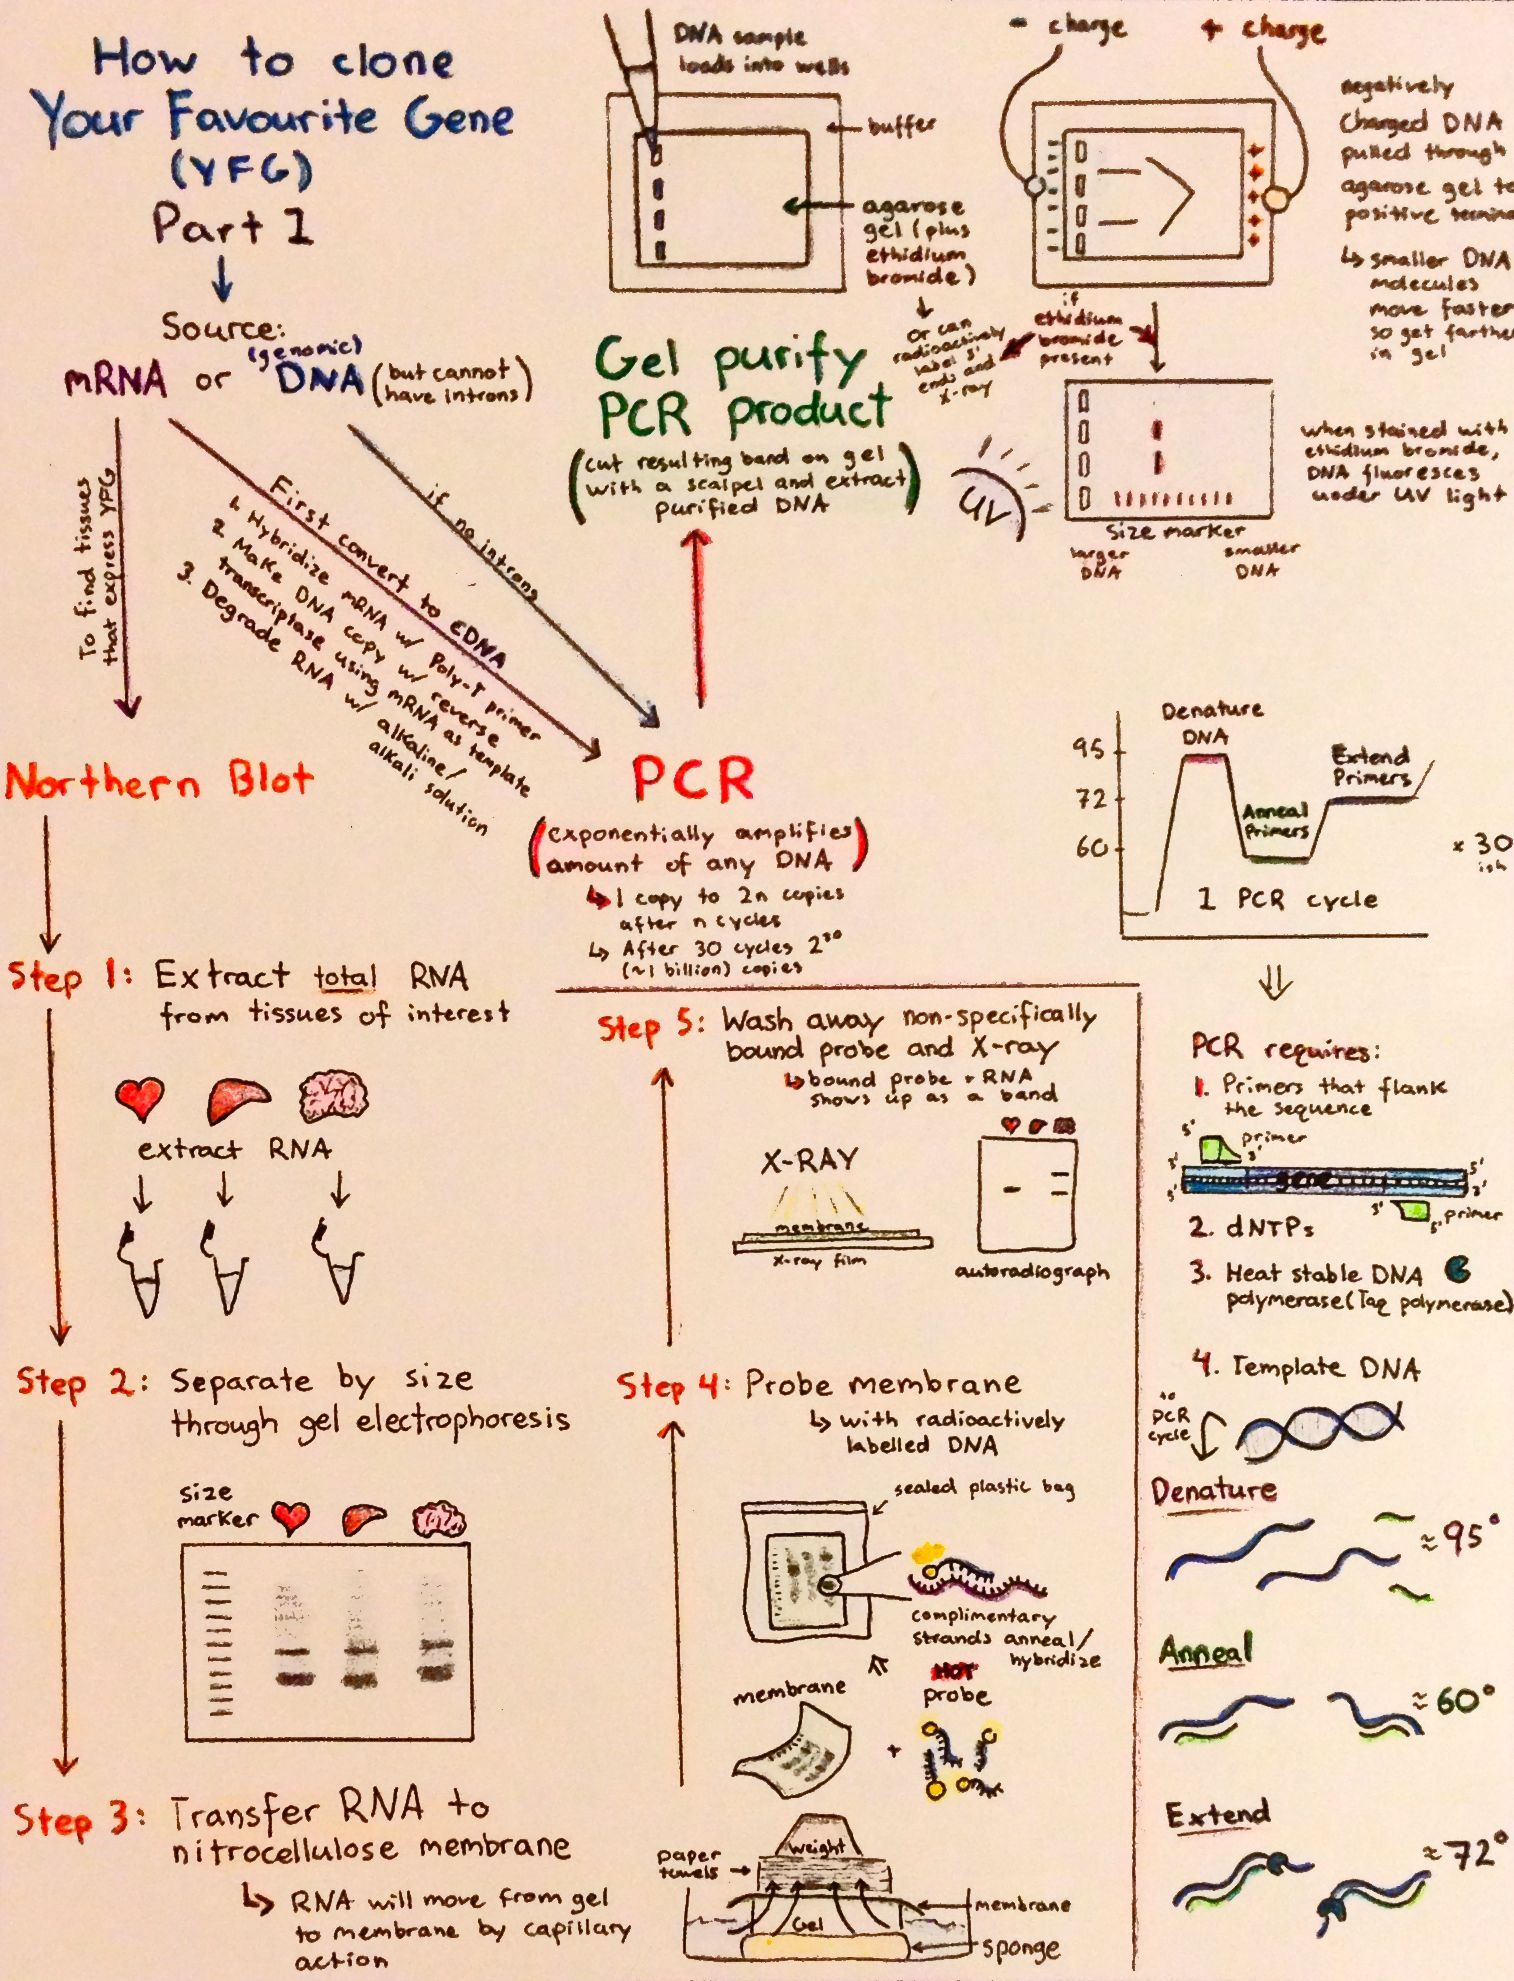 How to clone
Your Favourite Gene
(YFG)
Part 1
Source:
(genomic)
mRNA or DNA (but cannot
have introns)
To find tissues
that express YFG
First convert to cDNA
1. Hybridize mRNA w/ Poly-T primer
2. Make DNA copy w/ reverse
transcriptase using mRNA as template
3. Degrade RNA w/ alkaline/
alkali solution
if no introns
DNA sample
loads into wells
buffer
agarose
gel (plus
ethidium
bromide)
or can
radioactively
label 5'
ends and
X-ray
- charge
+ charge
negatively
Charged DNA
pulled through
agarose gel to
positive termina
↳ smaller DNA
molecules
move faster
so get farthe
in gel
if
ethidium
bromide
present
Gel purify
PCR product
(cut resulting band on gel
with a scalpel and extract
purified DNA)
UV
Size marker
larger
DNA
smaller
DNA
when stained with
ethidium bromide,
DNA fluoresces
under UV light
Northern Blot
PCR
(exponentially amplifies
amount of any DNA)
↳ 1 copy to 2n copies
after n cycles
↳ After 30 cycles 2³⁰
(~1 billion) copies
Denature
DNA
95
72
60
Anneal
Primers
Extend
Primers
1 PCR cycle
x 30
ish
Step 1: Extract total RNA
from tissues of interest
extract RNA
Step 2: Separate by size
through gel electrophoresis
size
marker
Step 3: Transfer RNA to
nitrocellulose membrane
↳ RNA will move from gel
to membrane by capillary
action
paper
towels
weight
Gel
membrane
sponge
Step 4: Probe membrane
↳ with radioactively
labelled DNA
sealed plastic bag
complimentary
strands anneal/
hybridize
membrane
+
HOT
probe
Step 5: Wash away non-specifically
bound probe and X-ray
↳ bound probe + RNA
shows up as a band
X-RAY
membrane
X-ray film
autoradiograph
PCR requires:
1. Primers that flank
the sequence
5'
primer
3'
3'
5'
gene
5'
3'
3'
5'
primer
2. dNTPs
3. Heat stable DNA
polymerase (Taq polymerase)
4. Template DNA
to
PCR
cycle
Denature
≈95°
Anneal
≈60°
Extend
≈72°